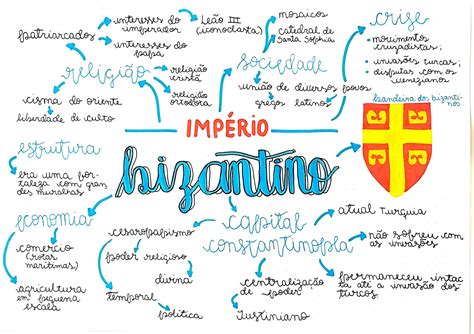 patriarcados
interesses do
imperador
interesses do
papa
Leão III
(iconoclasta)
mosaicos
catedral de
Santa Sophia
crise
• movimentos
cruzadistas;
• invasões turcas;
• disputas com os
venezianos
religião
religião
cristã
religião
sociedade
união de diversos povos
gregos
latinos
bandeira dos bizanti-
nos
cisma do oriente
liberdade de culto
IMPÉRIO
bizantino
estrutura
era uma forta-
leza com gran
des muralhas
economia
comércio
(rotas
marítimas)
agricultura
em pequena
escala
cesaropapismo
poder religioso
divina
temporal
política
capital
constantinopla
centralização
de poder
Justiniano
atual Turquia
não sofreu com
as invasões
permaneceu intac
ta até a invasão dos
turcos.